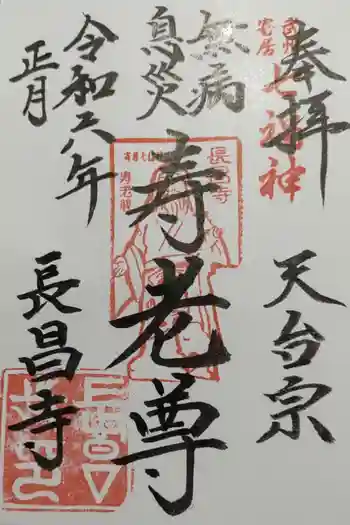 奉拝
天台宗
七福神
無病
息災
寿老尊
長昌寺
寿老尊
令和六年
正月
長昌寺